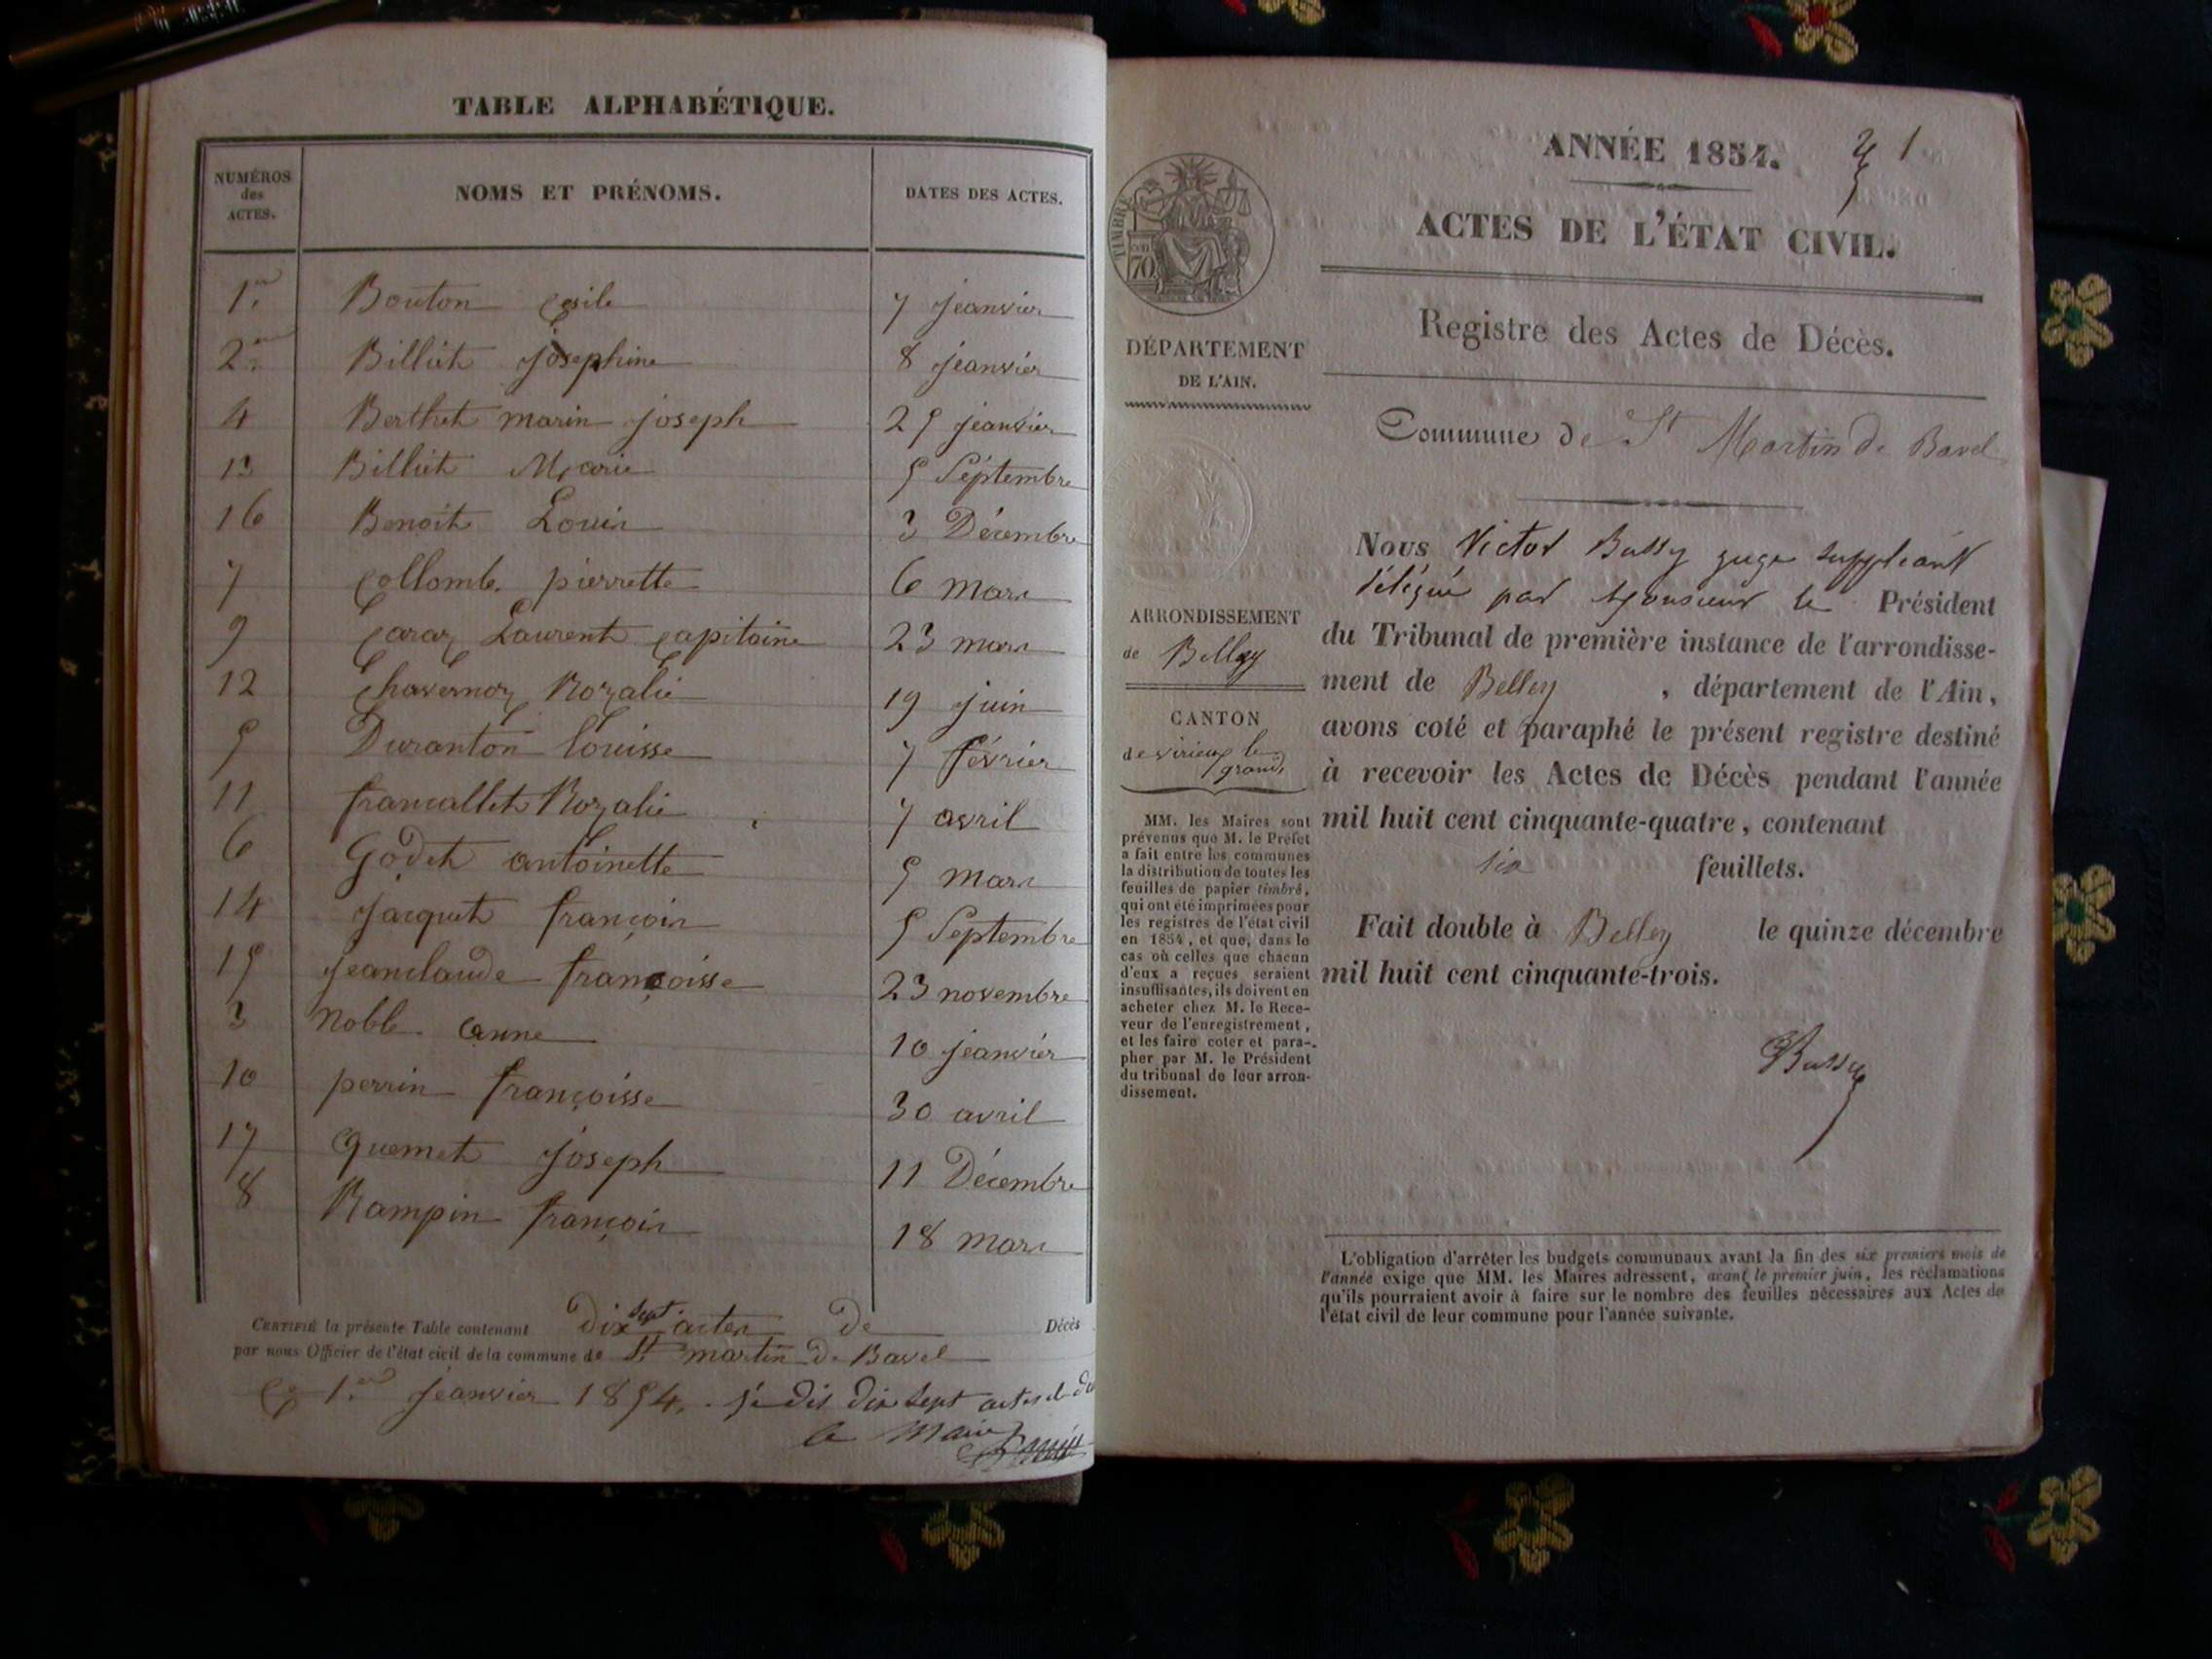 TABLE ALPHABÉTIQUE.
NUMÉROS des ACTES. NOMS ET PRÉNOMS. DATES DES ACTES.
1er Bouton Cesile 7 jeanvier
2me Billiet josephine 8 jeanvier
4 Berthet marin joseph 25 jeanvier
13 Billiet Marie 5 Septembre
16 Benoit Louis 3 Décembre
7 Collomb pierrette 6 mars
9 Caraz Laurent Capitaine 23 mars
12 Chavernoz Rozalie 19 juin
5 Duranton louisse 7 février
11 francallet Rozalie 7 avril
6 Godet antoinette 5 mars
14 Jacquet françois 5 Septembre
15 jeanclaude françoisse 23 novembre
3 Noble anne 10 jeanvier
10 perrin françoisse 30 avril
17 Quemet joseph 11 Décembre
8 Rampin françois 18 mars
CERTIFIÉ la présente Table contenant dix sept actes de Décès
par nous Officier de l'état civil de la commune de St martin de Bavel
1er jeanvier 1854. je dis dix sept actes de
le Maire
ANNÉE 1854. 1
ACTES DE L'ÉTAT CIVIL.
Registre des Actes de Décès.
Commune de St Martin de Bavel
TIMBRE
70
DÉPARTEMENT
DE L'AIN.
ARRONDISSEMENT
de Belley
CANTON
de virieux le
grand
MM. les Maires sont
prévenus que M. le Préfet
a fait entre les communes
la distribution de toutes les
feuilles de papier timbré,
qui ont été imprimées pour
les registres de l'état civil
en 1854, et que, dans le
cas où celles que chacun
d'eux a reçues seraient
insuffisantes, ils doivent en
acheter chez M. le Rece-
veur de l'enregistrement,
et les faire coter et para-
pher par M. le Président
du tribunal de leur arron-
dissement.
Nous Victor Bussy juge suppléant
délégué par Monsieur le Président
du Tribunal de première instance de l'arrondisse-
ment de Belley, département de l'Ain,
avons coté et paraphé le présent registre destiné
à recevoir les Actes de Décès pendant l'année
mil huit cent cinquante-quatre, contenant
six feuillets.
Fait double à Belley le quinze décembre
mil huit cent cinquante-trois.
Bussy
L'obligation d'arrêter les budgets communaux avant la fin des six premiers mois de
l'année exige que MM. les Maires adressent, avant le premier juin, les réclamations
qu'ils pourraient avoir à faire sur le nombre des feuilles nécessaires aux Actes de
l'état civil de leur commune pour l'année suivante.